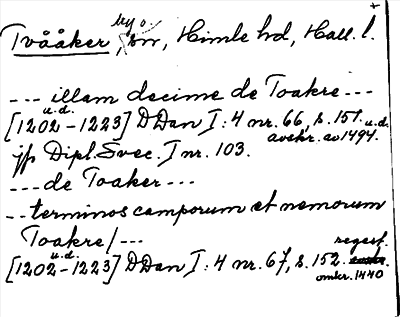 Tvååker by o. sn, Himle hd, Hall. l.
--- illam decime de Toakre ---
[1202-1223] u.d. DDan I:4 nr. 66, s. 151. u.d.
avskr. av 1494.
jfr Dipl. Svec. I nr. 103.
--- de Toaker ---
-- terminos camporum et nemorum
Toakre/---
[1202-1223] u.d. DDan I:4 nr. 67, s. 152. regest.
omkr. 1440